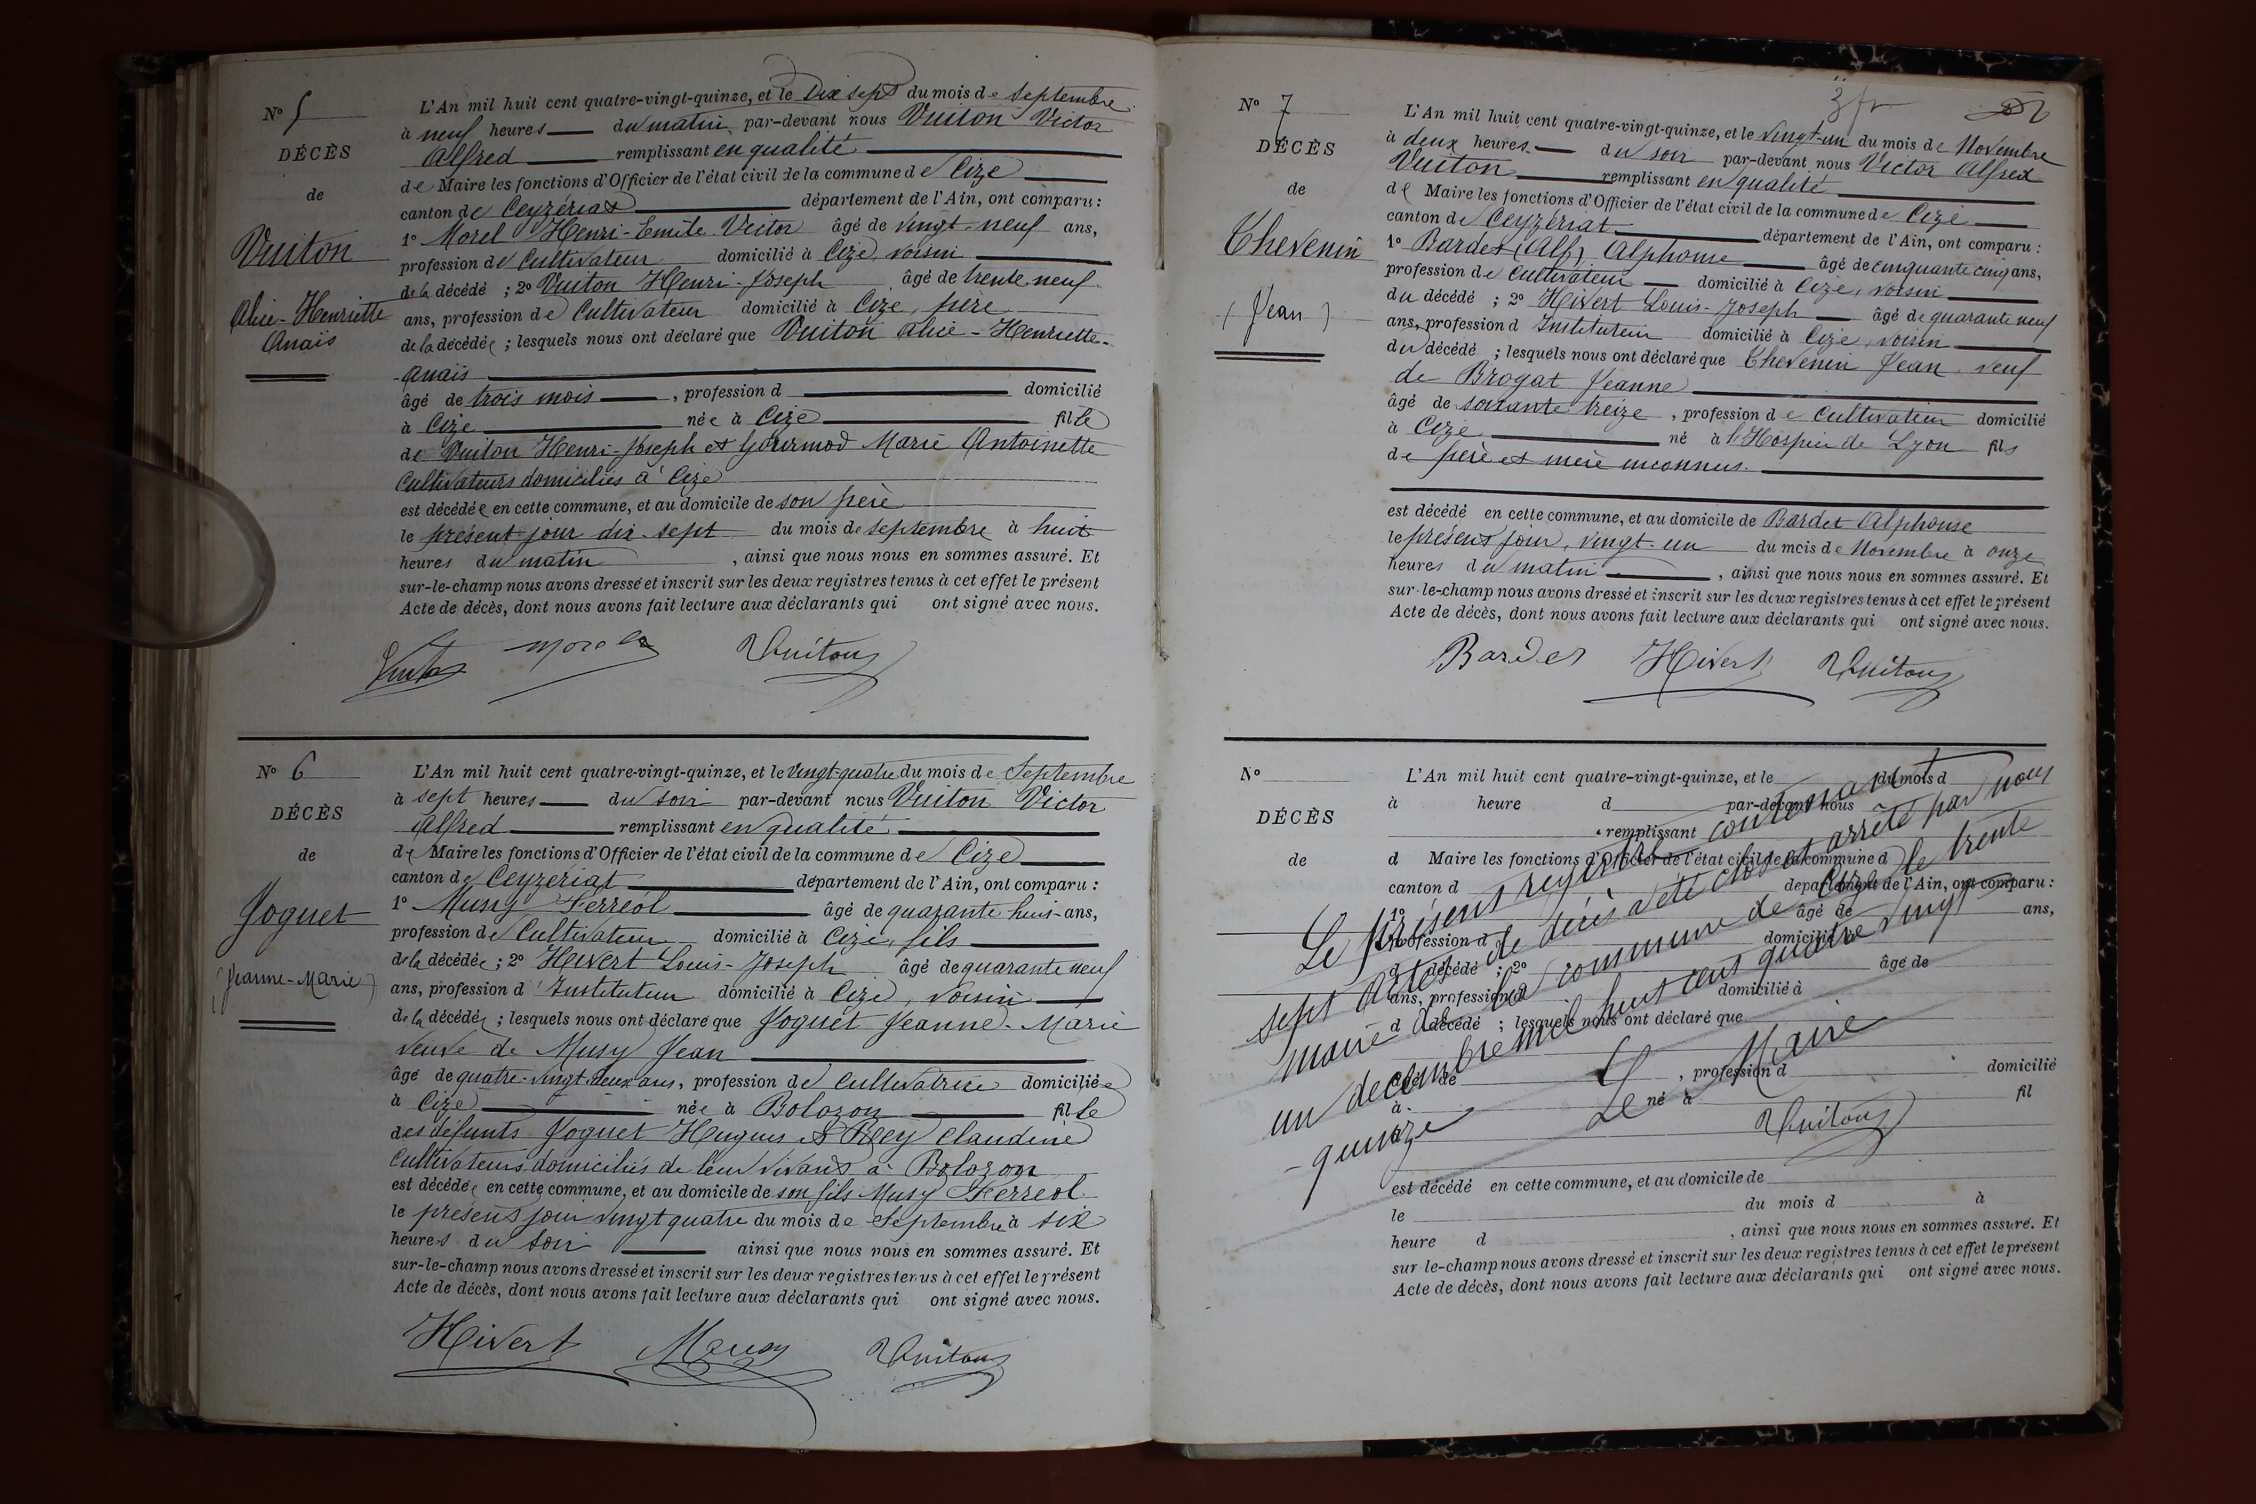 N° 5
DÉCÈS
de
Vuiton
Alice-Henriette
Anaïs
L'An mil huit cent quatre-vingt-quinze, et le Dix sept du mois de Septembre
à neuf heures du matin par-devant nous Vuiton Victor
Alfred remplissant en qualité
de Maire les fonctions d'Officier de l'état civil de la commune de Cize
canton de Ceyzériat département de l'Ain, ont comparu :
1° Morel Henri-Emile Victor âgé de vingt-neuf ans,
profession de Cultivateur domicilié à Cize, voisin
de la décédé ; 2° Vuiton Henri-Joseph âgé de trente neuf
ans, profession de Cultivateur domicilié à Cize, père
de la décédée ; lesquels nous ont déclaré que Vuiton Alice-Henriette-
Anaïs
âgé de trois mois , profession d domicilié
à Cize née à Cize fille
de Vuiton Henri-Joseph et Marie Antoinette
Cultivateurs domiciliés à Cize
est décédée en cette commune, et au domicile de son père
le présent jour dix-sept du mois de septembre à huit
heures du matin , ainsi que nous nous en sommes assuré. Et
sur-le-champ nous avons dressé et inscrit sur les deux registres tenus à cet effet le présent
Acte de décès, dont nous avons fait lecture aux déclarants qui ont signé avec nous.
Vuiton Morel Vuiton
N° 6
DÉCÈS
de
Joguet
(Jeanne-Marie)
L'An mil huit cent quatre-vingt-quinze, et le vingt-quatre du mois de Septembre
à sept heures du soir par-devant nous Vuiton Victor
Alfred remplissant en qualité
de Maire les fonctions d'Officier de l'état civil de la commune de Cize
canton de Ceyzeriat département de l'Ain, ont comparu :
1° Musy Ferréol âgé de quarante huit ans,
profession de Cultivateur domicilié à Cize, fils
de la décédée ; 2° Hivert Louis-Joseph âgé de quarante neuf
ans, profession d'Instituteur domicilié à Cize, voisin
de la décédée ; lesquels nous ont déclaré que Joguet Jeanne-Marie
veuve de Musy Jean
âgé de quatre-vingt deux ans, profession de cultivatrice domiciliée
à Cize née à Bolozon fille
des défunts Joguet Hugues et Rey Claudine
Cultivateurs domiciliés de leur vivant à Bolozon
est décédée en cette commune, et au domicile de son fils Musy Ferréol
le présent jour vingt quatre du mois de Septembre à six
heures du soir ainsi que nous nous en sommes assuré. Et
sur-le-champ nous avons dressé et inscrit sur les deux registres tenus à cet effet le présent
Acte de décès, dont nous avons fait lecture aux déclarants qui ont signé avec nous.
Hivert Musy Vuiton
3 fr
N° 7
DÉCÈS
de
Chevenin
(Jean)
L'An mil huit cent quatre-vingt-quinze, et le vingt-un du mois de Novembre
à deux heures du soir par-devant nous Victor Alfred
Vuiton remplissant en qualité
de Maire les fonctions d'Officier de l'état civil de la commune de Cize
canton de Ceyzériat département de l'Ain, ont comparu :
1° Bardet (Alf) Alphonse âgé de cinquante cinq ans,
profession de cultivateur domicilié à Cize, voisin
du décédé ; 2° Hivert Louis-Joseph âgé de quarante neuf
ans, profession d Instituteur domicilié à Cize, voisin
du décédé ; lesquels nous ont déclaré que Chevenin Jean, veuf
de Brogat Jeanne
âgé de soixante treize , profession de cultivateur domicilié
à Cize né à l'Hospice de Lyon fils
de père et mère inconnus.
est décédé en cette commune, et au domicile de Bardet Alphonse
le présent jour, vingt-un du mois de Novembre à onze
heures du matin , ainsi que nous nous en sommes assuré. Et
sur-le-champ nous avons dressé et inscrit sur les deux registres tenus à cet effet le présent
Acte de décès, dont nous avons fait lecture aux déclarants qui ont signé avec nous.
Bardet Hivert Vuiton
N°
DÉCÈS
de
L'An mil huit cent quatre-vingt-quinze, et le du mois d
à heure d par-devant nous
remplissant
d Maire les fonctions d'Officier de l'état civil de la commune d
canton d département de l'Ain, ont comparu :
1° âgé de ans,
profession d domicilié à
d décédé ; 2° âgé de
ans, profession d domicilié à
d décédé ; lesquels nous ont déclaré que
âgé de , profession d domicilié
à né à fil
est décédé en cette commune, et au domicile de
le du mois d à
heure d , ainsi que nous nous en sommes assuré. Et
sur le-champ nous avons dressé et inscrit sur les deux registres tenus à cet effet le présent
Acte de décès, dont nous avons fait lecture aux déclarants qui ont signé avec nous.
Le présent registre contenant
sept actes de décès a été clos et arrêté par nous
maire de la commune de Cize le trente
un decembre mil huit cent quatre vingt
-quinze
Le Maire
Vuiton